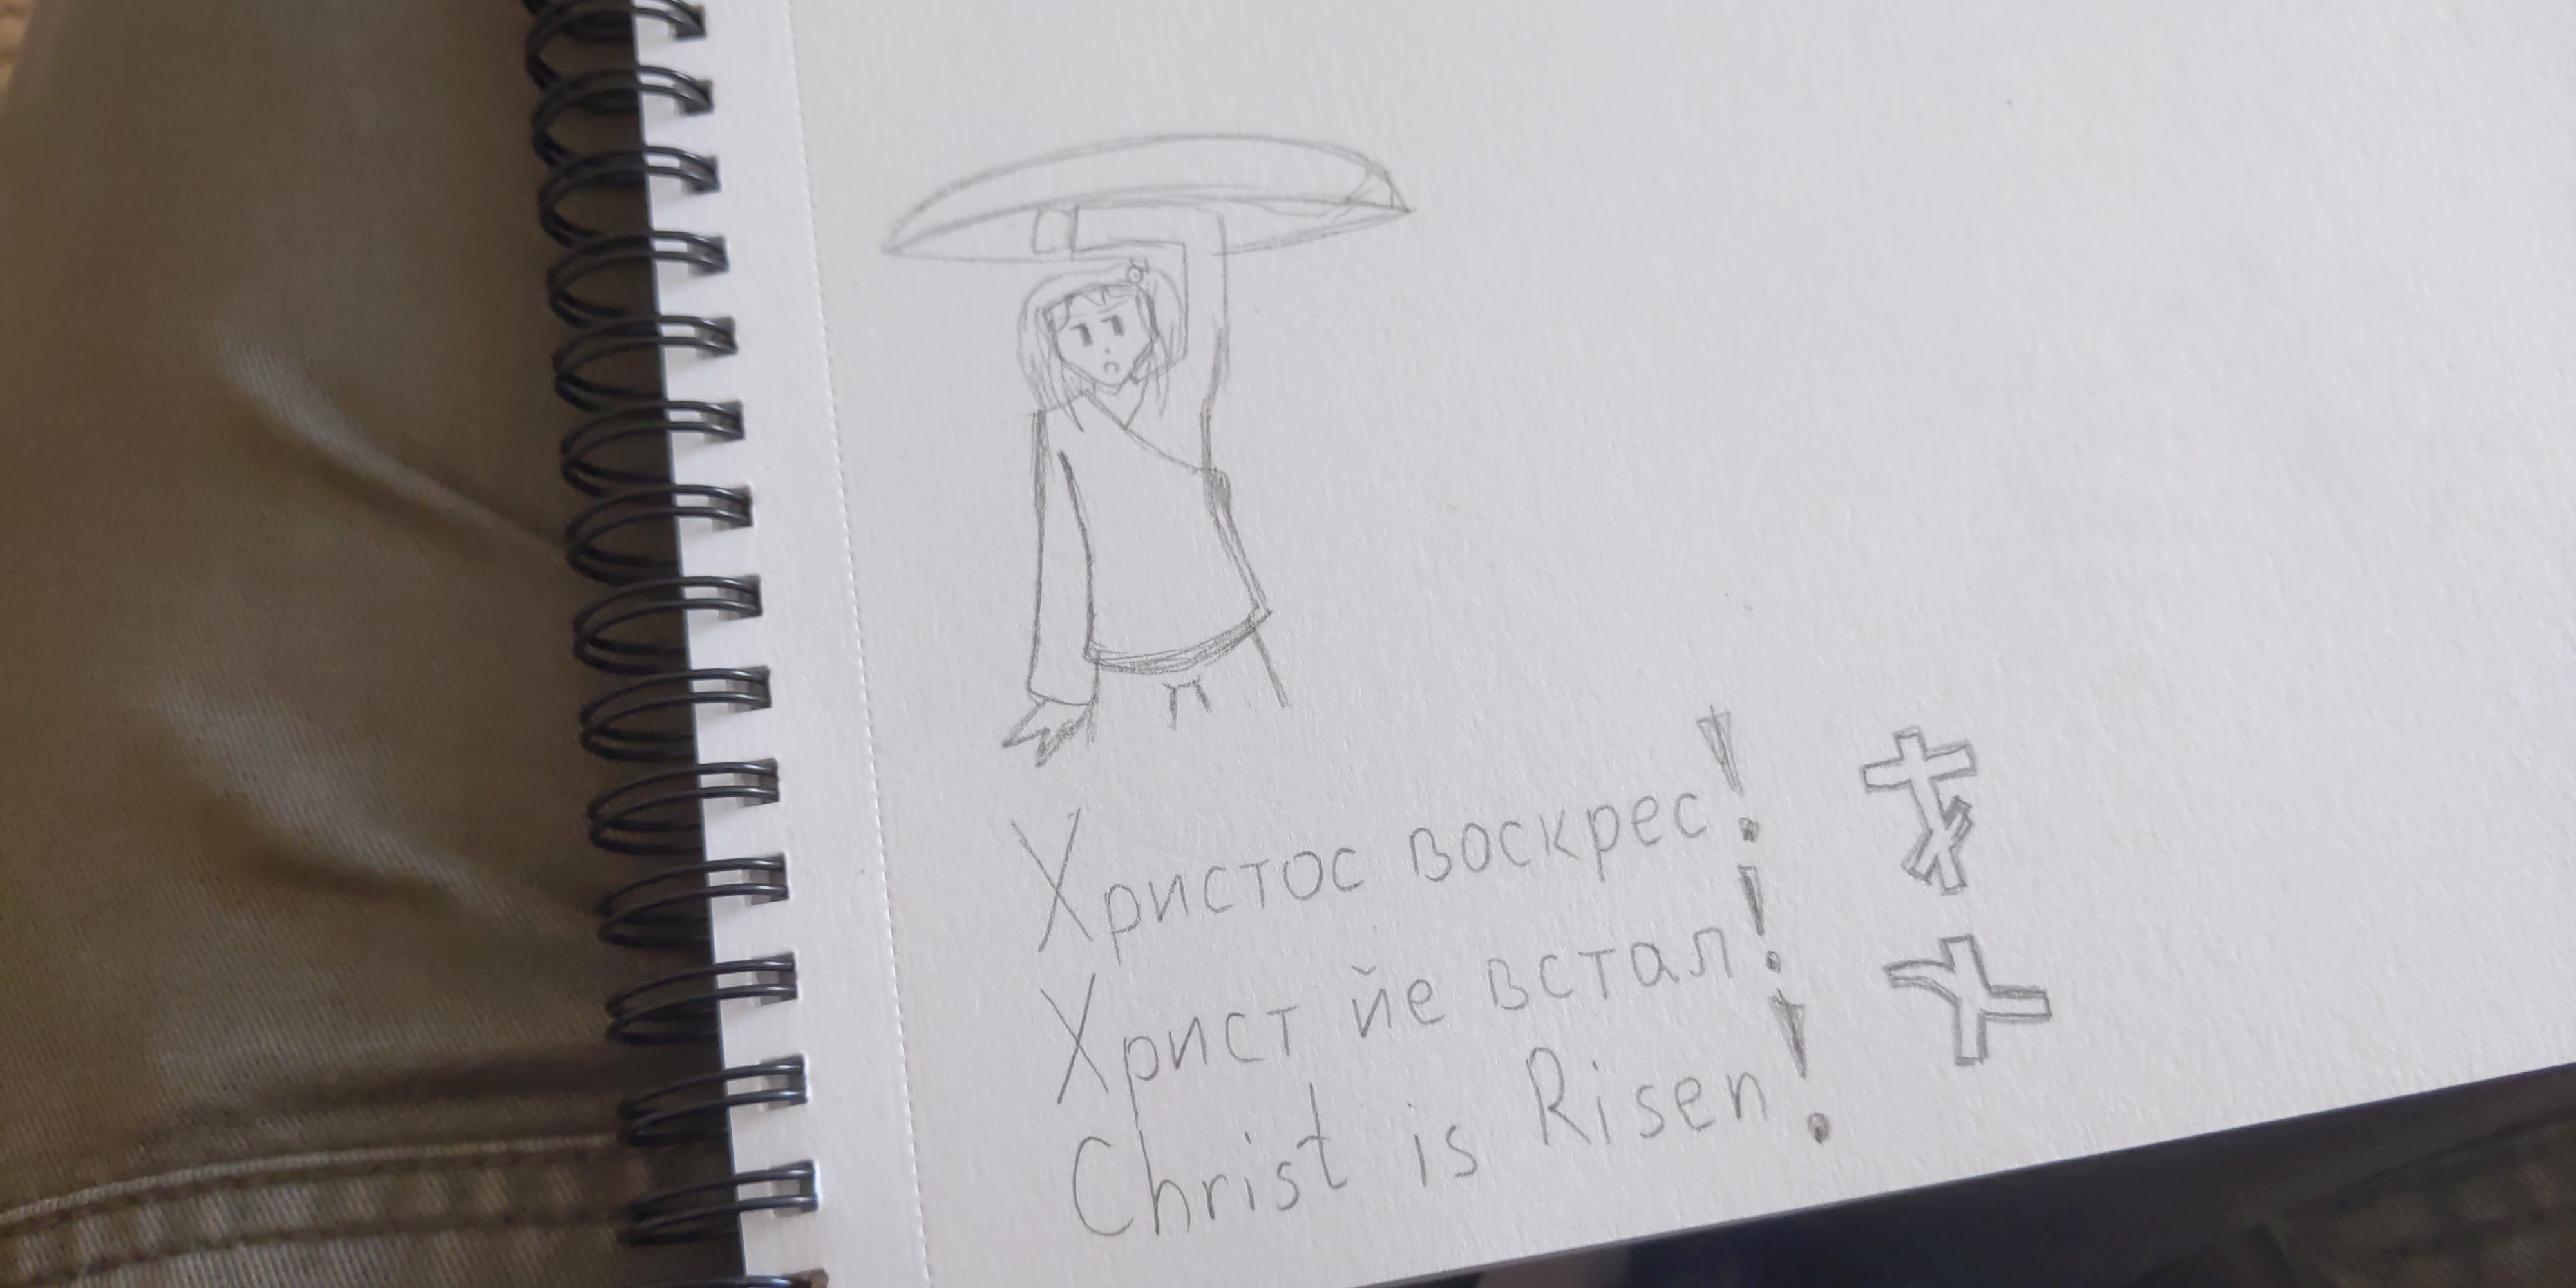 Христос воскрес!
Христ йе встал!
Christ is Risen!